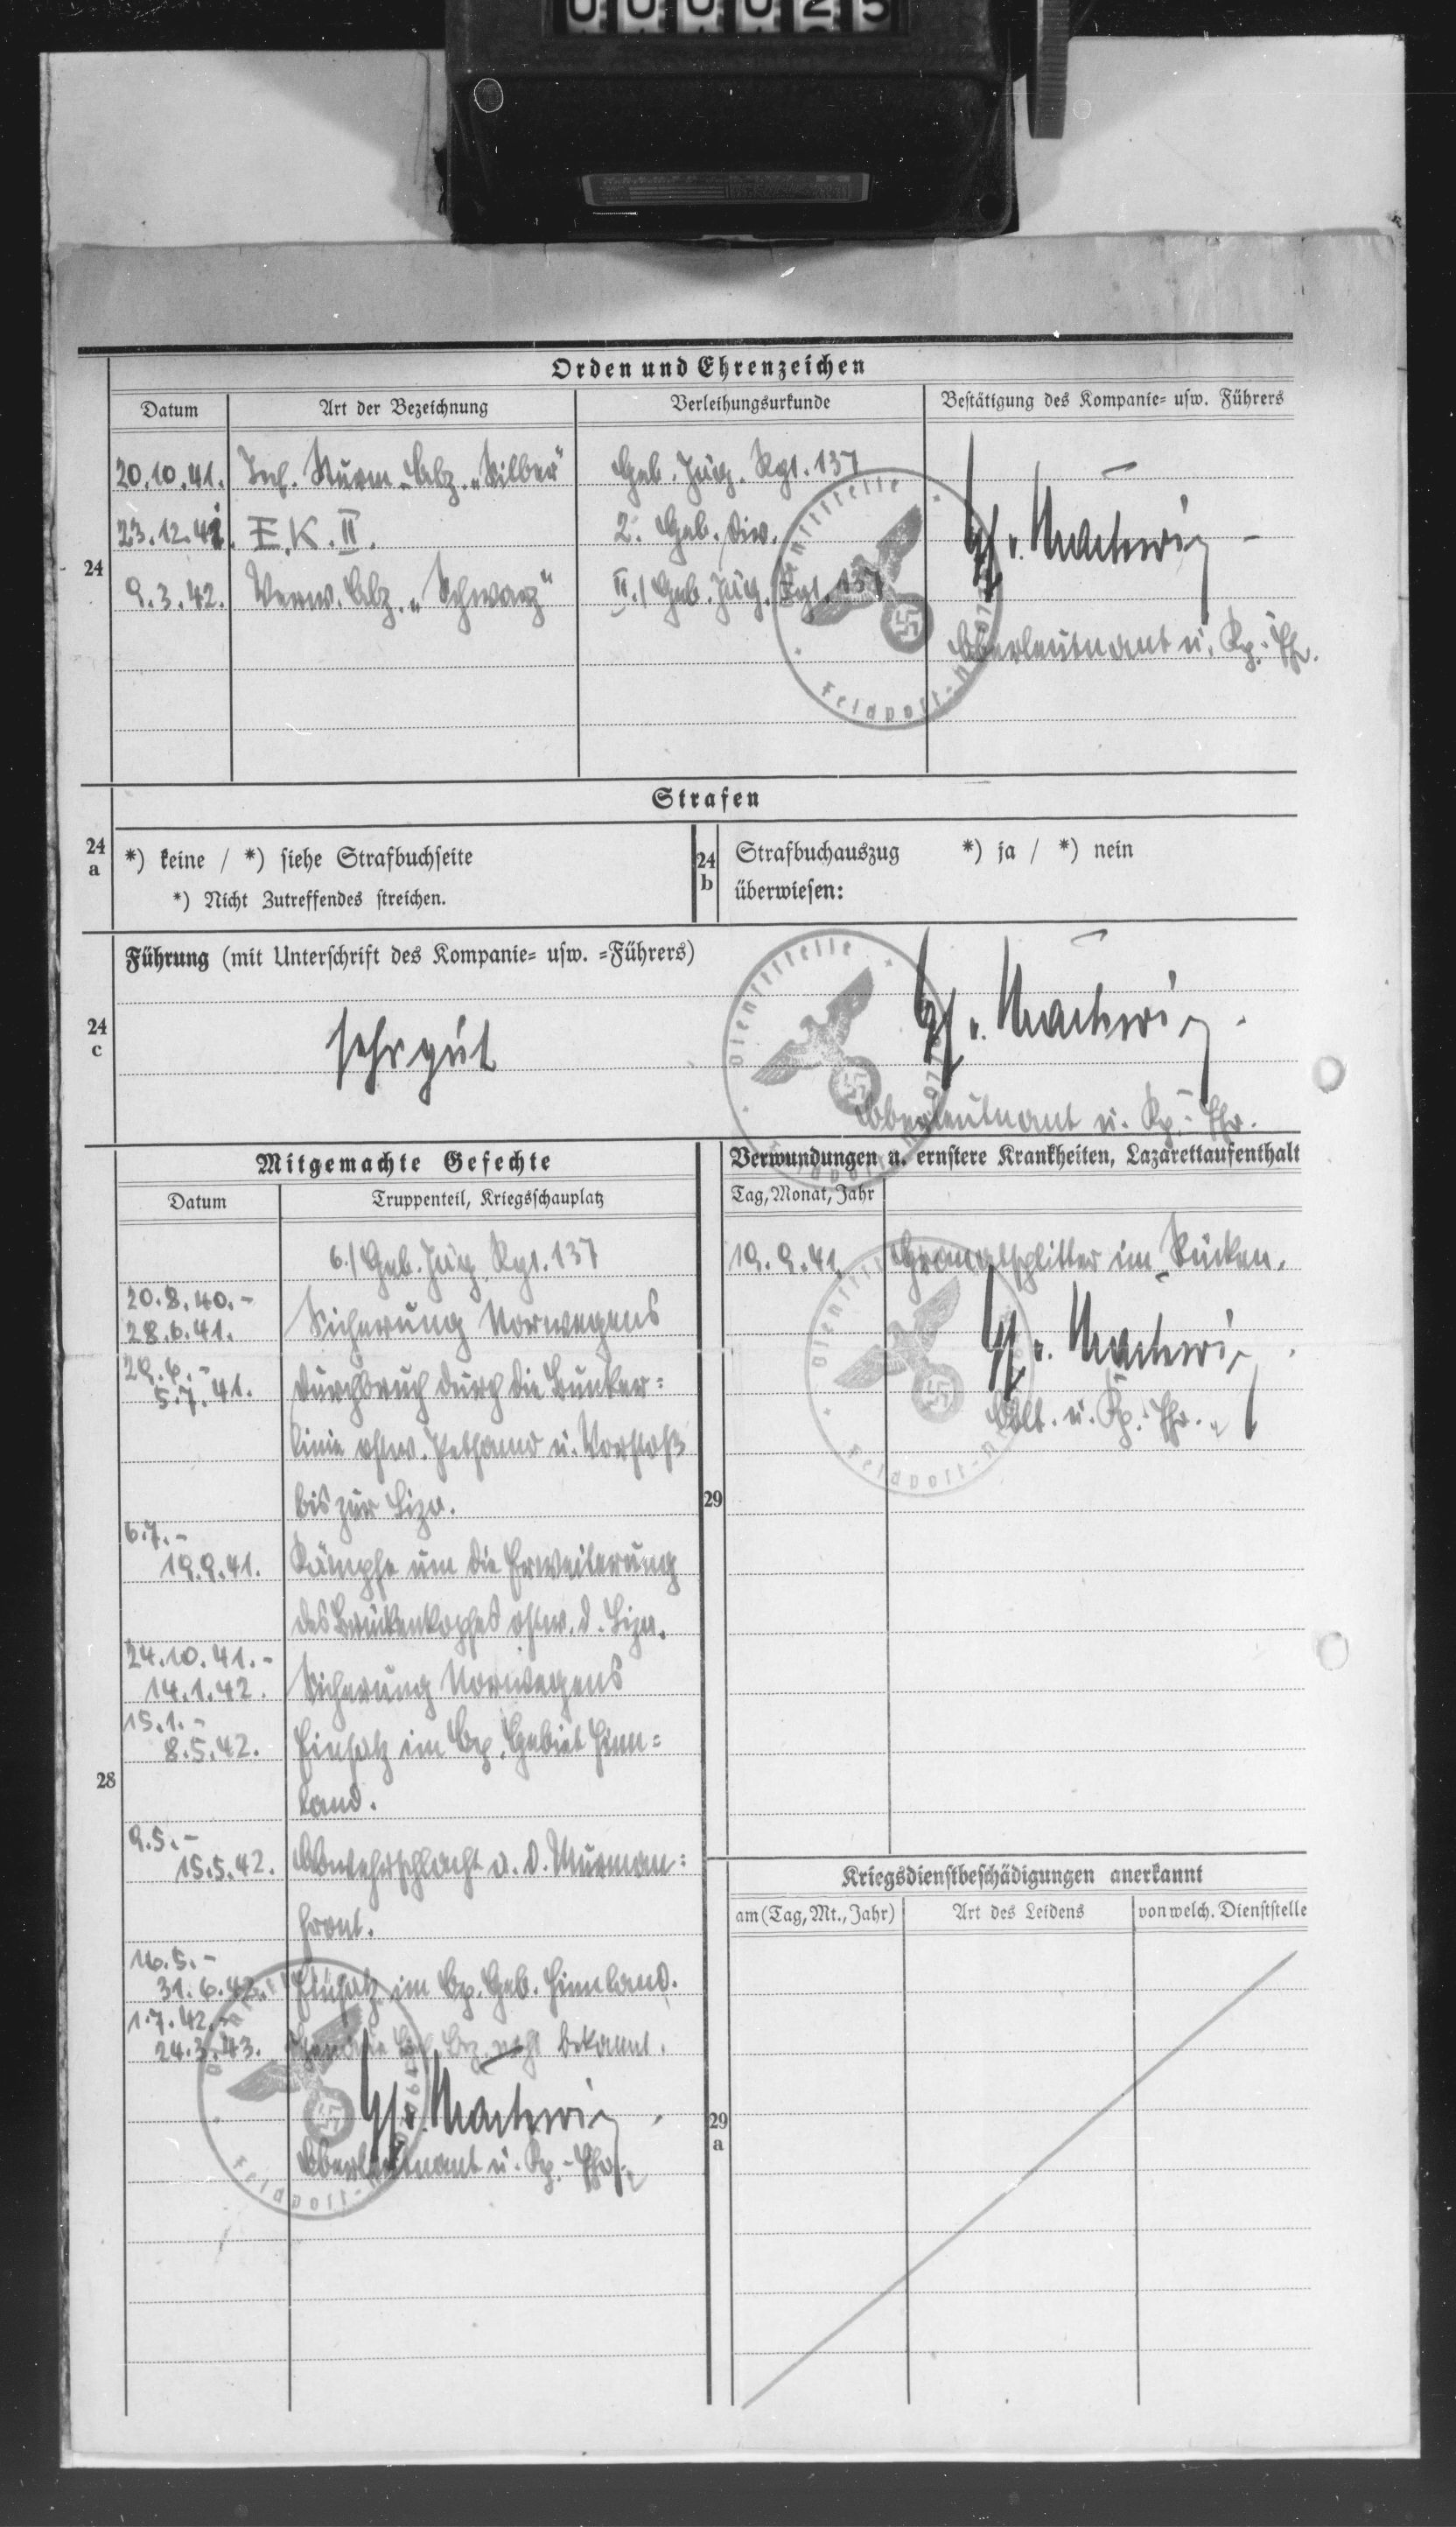 000025
Orden und Ehrenzeichen
Datum
Art der Bezeichnung
Verleihungsurkunde
Bestätigung des Kompanie- usw. Führers
24
20.10.41.
Inf. Sturm-Abz. „Silber"
Geb. Jäg. Rgt. 137
23.12.41.
E.K. II.
2. Geb. Div.
9.3.42.
Verw. Abz. „Schwarz"
II./Geb. Jäg. Rgt. 137
Oberleutnant u. Kp.-Fhr.
Dienststelle
Feldpost-N
Strafen
24 a
*) keine / *) siehe Strafbuchseite
*) Nicht Zutreffendes streichen.
24 b
Strafbuchauszug *) ja / *) nein
überwiesen:
Führung (mit Unterschrift des Kompanie- usw. -Führers)
24 c
sehr gut
Oberleutnant u. Kp.-Fhr.
Mitgemachte Gefechte
Datum
Truppenteil, Kriegsschauplatz
28
6./Geb. Jäg. Rgt. 137
20.8.40.-
28.6.41.
Sicherung Norwegens
29.6.-
5.7.41.
Durchbruch durch die Bunker=
linie ostw. Petsamo u. Vorstoß
bis zur Liza.
6.7.-
19.9.41.
Kämpfe um die Erweiterung
des Brückenkopfes ostw. d. Liza.
24.10.41.-
14.1.42.
Sicherung Norwegens
15.1.-
8.5.42.
Einsatz im Op. Gebiet Finn=
land.
9.5.-
15.5.42.
Abwehrschlacht a. d. Murman=
front.
16.5.-
31.6.42.
Einsatz im Op. Geb. Finnland.
1.7.42.-
24.3.43.
nicht bekannt.
Oberleutnant u. Kp.-Fhr.
Feldpost-
Verwundungen u. ernstere Krankheiten, Lazarettaufenthalt
Tag, Monat, Jahr
29
19.9.41.
Granatsplitter im Rücken.
Oblt. u. Kp. Fhr.
Dienststelle
Feldpost-N
Kriegsdienstbeschädigungen anerkannt
am (Tag, Mt., Jahr)
Art des Leidens
von welch. Dienststelle
29 a